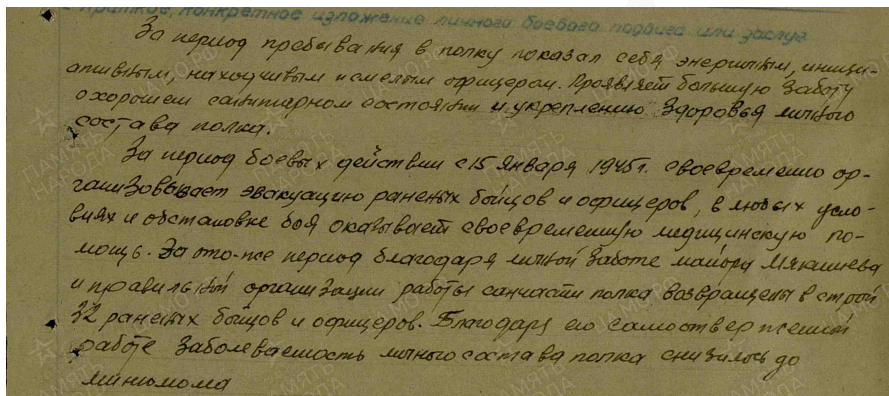 краткое, конкретное изложение личного боевого подвига или заслуг
За период пребывания в полку показал себя энергичным, иници-
ативным, находчивым и смелым офицером. Проявляет большую заботу
о хорошем санитарном состоянии и укреплению здоровья личного
состава полка.
За период боевых действии с 15 января 1945 г. своевременно ор-
ганизовывает эвакуацию раненых бойцов и офицеров, в любых усло-
виях и обстановке боя оказывает своевременную медицинскую по-
мощь. За это-же период благодаря личной заботе майора Мякишева
и правильной организации работы санчасти полка возвращены в строй
32 раненых бойцов и офицеров. Благодаря его самоотверженной
работе заболеваемость личного состава полка снизилось до
минимома
ПАМЯТЬ НАРОДА